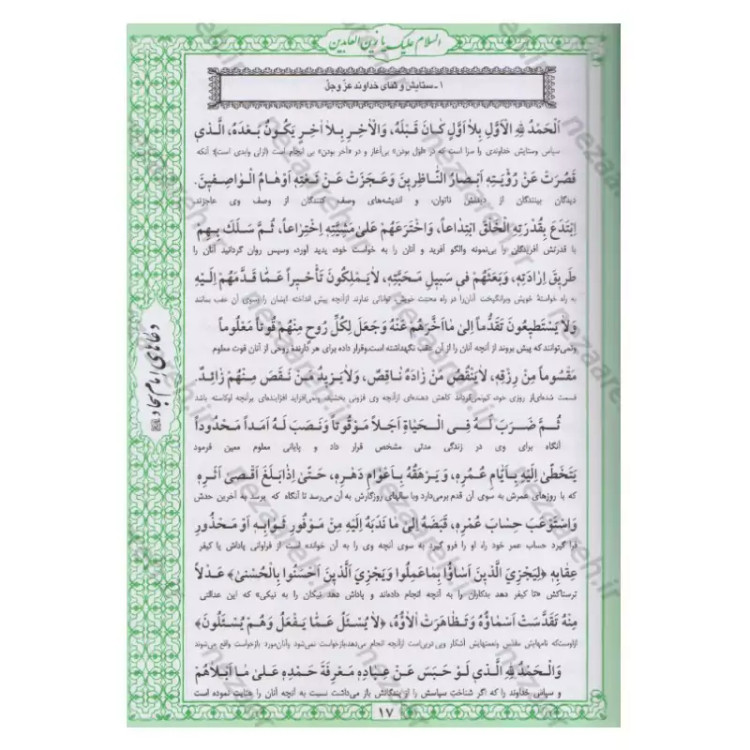 السلام علیک یا زین العابدین
۱ـ ستایش و ثنای خداوند عزّ و جلّ
اَلْحَمْدُ لِلّٰهِ الْاَوَّلِ بِلاٰ اَوَّلٍ كٰانَ قَبْلَهُ، وَالْاٰخِرِ بِلاٰ اٰخِرٍ يَكُونُ بَعْدَهُ، اَلَّذى
سپاس وستایش خداوندی را سزا است که در «اول بودن» بی‌آغاز و در «آخر بودن» بی انجام است (ازلی وابدی است)؛ آنکه
قَصُرَتْ عَنْ رُؤْيَتِهِ اَبْصٰارُ النّٰاظِرينَ وَعَجَزَتْ عَنْ نَعْتِهِ اَوْهٰامُ الْوٰاصِفينَ.
دیدگان بینندگان از دیدنش ناتوان، و اندیشه‌های وصف کنندگان از وصف وی عاجزند.
اِبْتَدَعَ بِقُدْرَتِهِ الْخَلْقَ ابْتِدٰاعاً، وَاخْتَرَعَهُمْ عَلىٰ مَشِيَّتِهِ اِخْتِرٰاعاً، ثُمَّ سَلَكَ بِهِمْ
با قدرتش آفریدگان را بی‌نمونه والگو آفرید و آنان را به خواست خود، پدید آورد، وسپس روان گردانید آنان را
طَريقَ اِرٰادَتِهِ، وَبَعَثَهُمْ فى سَبيلِ مَحَبَّتِهِ، لاٰيَمْلِكُونَ تَأْخيراً عَمّٰا قَدَّمَهُمْ اِلَيْهِ
به راه خواستهٔ خویش وبرانگیخت آنان‌را در راه محبت خویش، توانائی ندارند ازآنچه پیش انداخته ایشان را بسوی آن عقب بمانند
وَلاٰ يَسْتَطيعُونَ تَقَدُّماً اِلىٰ مٰااَخَّرَهُمْ عَنْهُ وَجَعَلَ لِكُلِّ رُوحٍ مِنْهُمْ قُوتاً مَعْلُوماً
ونمی‌توانند که پیش بروند از آنچه آنان را از آن عقب نگهداشته است.وقرار داده برای هر دارندهٔ روحی از آنان قوت معلوم
مَقْسُوماً مِنْ رِزْقِهِ، لاٰيَنْقُصُ مَنْ زٰادَهُ نٰاقِصٌ، وَلاٰيَزيدُ مَنْ نَقَصَ مِنْهُمْ زٰائِدٌ.
قسمت شده‌ای‌از روزی خود، کم‌نمی‌گرداند کاهش دهنده‌ای ازآنچه وی فزونی بخشید، ونمی‌افزاید افزاینده‌ای برآنچه اوکاسته باشد
ثُمَّ ضَرَبَ لَهُ فِى الْحَيٰاةِ اَجَلاً مَوْقُوتاً وَنَصَبَ لَهُ اَمَداً مَحْدُوداً
آنگاه برای وی در زندگی مدتی مشخص قرار داد و پایانی معلوم معین فرمود
يَتَخَطّىٰ اِلَيْهِ بِاَيّٰامِ عُمُرِهِ، وَيَرْهَقُهُ بِاَعْوٰامِ دَهْرِهِ، حَتّىٰ اِذٰابَلَغَ اَقْصىٰ اَثَرِهِ
که با روزهای عمرش به سوی آن قدم برمی‌دارد وبا سالهای روزگارش به آن می‌رسد تا آنگاه که برسد به آخرین حدش
وَاسْتَوْعَبَ حِسٰابَ عُمُرِهِ، قَبَضَهُ اِلىٰ مٰا نَدَبَهُ اِلَيْهِ مِنْ مَوْفُورِ ثَوٰابِهِ اَوْ مَحْذُورِ
فرا گیرد حساب عمر خود راه، او را فرو گیرد به سوی آنچه وی را به آن خوانده است از فراوانی پاداش یا کیفر
عِقٰابِهِ ﴿لِيَجْزِىَ الَّذينَ اَسٰاؤُا بِمٰاعَمِلُوا وَيَجْزِىَ الَّذينَ اَحْسَنُوا بِالْحُسْنىٰ﴾ عَدْلاً
ترسناکش «تا کیفر دهد بدکاران را به آنچه انجام داده‌اند و پاداش دهد نیکان را به نیکی» که این عدالتی
مِنْهُ تَقَدَّسَتْ اَسْمٰاؤُهُ وَتَظٰاهَرَتْ اٰلاٰؤُهُ، ﴿لاٰ يُسْئَلُ عَمّٰا يَفْعَلُ وَهُمْ يُسْئَلُونَ﴾
ازاوست‌که نامهایش مقدّس ونعمتهایش آشکار وپی درپی‌است ازآنچه انجام می‌دهدبازخواست نمی‌شود وآنان‌مورد بازخواست واقع می‌شوند
وَالْحَمْدُ لِلّٰهِ الَّذى لَوْ حَبَسَ عَنْ عِبٰادِهِ مَعْرِفَةَ حَمْدِهِ عَلىٰ مٰا اَبْلاٰهُمْ
و سپاس خداوند را که اگر شناخت سپاسش را از بندگانش باز می‌داشت نسبت به آنچه آنان را عنایت نموده است
دعاهای امام سجاد
۱۷
nezaareh.ir